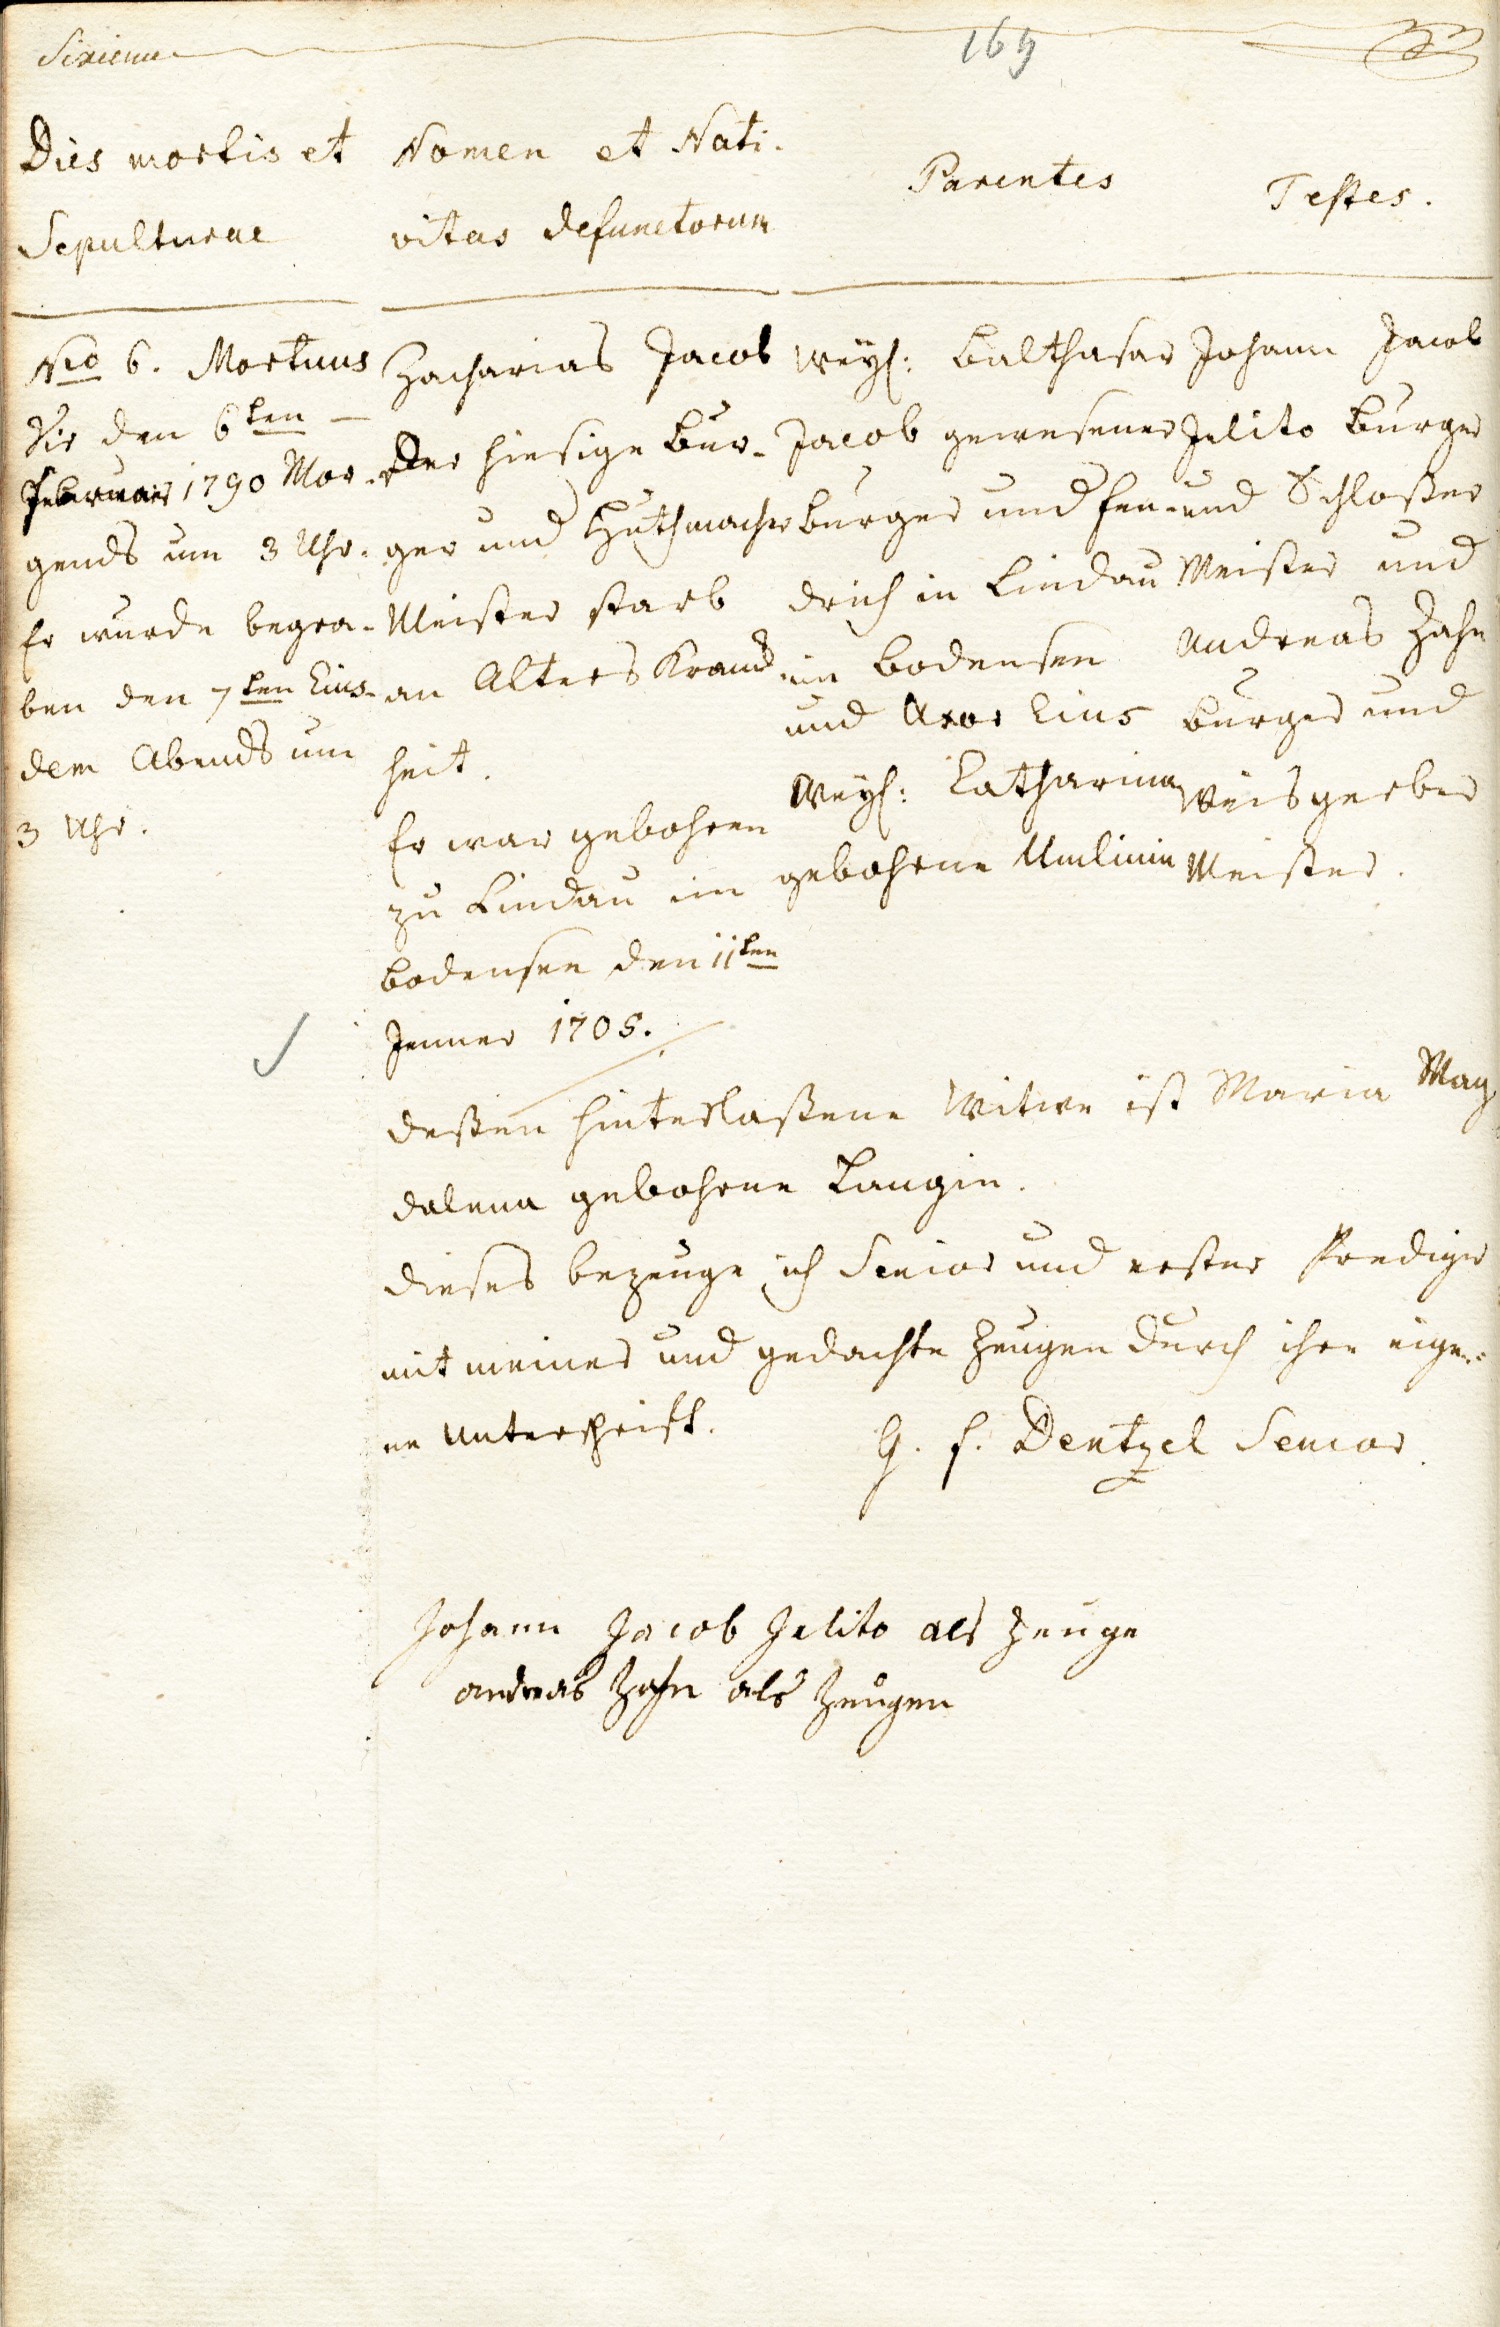 169
Dies mortis et
Sepulturae
Nomen et Nati-
vitas defunctorum
Parentes
Testes.
Nro 6. Mortuus
hic den 6ten –
Februar 1790 Mor-
gends um 3 Uhr.
Er wurde begra-
ben den 7ten Eius-
dem Abends um
3 Uhr.
Zacharias Jacob
Der hiesige Bur-
ger und Huthmacher
Meister starb
an Alters Kranck
heit.
Er war gebohren
zu Lindau im
Bodensee den 11ten
Jenner 1705.
Weyl: Balthasar
Jacob gewesener
Burger und Fen-
drich in Lindau
im Bodensee
und Uxor Eius
Weyl: Catharina
gebohrne Umlinin
Johann Jacob
Jelito Burger
und Schloßer
Meister und
Andreas Zahn
Burger und
Weisgerber
Meister.
deßen hinterlaßene Witwe ist Maria Mag
dalena gebohrne Langin.
dieses bezeuge ich Senior und erster Prediger
mit meiner und gedachte Zeugen durch ihre eige-
ne Unterschrift.
G. F. Dentzel Senior.
Johann Jacob Jelito als Zeuge
andreas Zahn als Zeugen